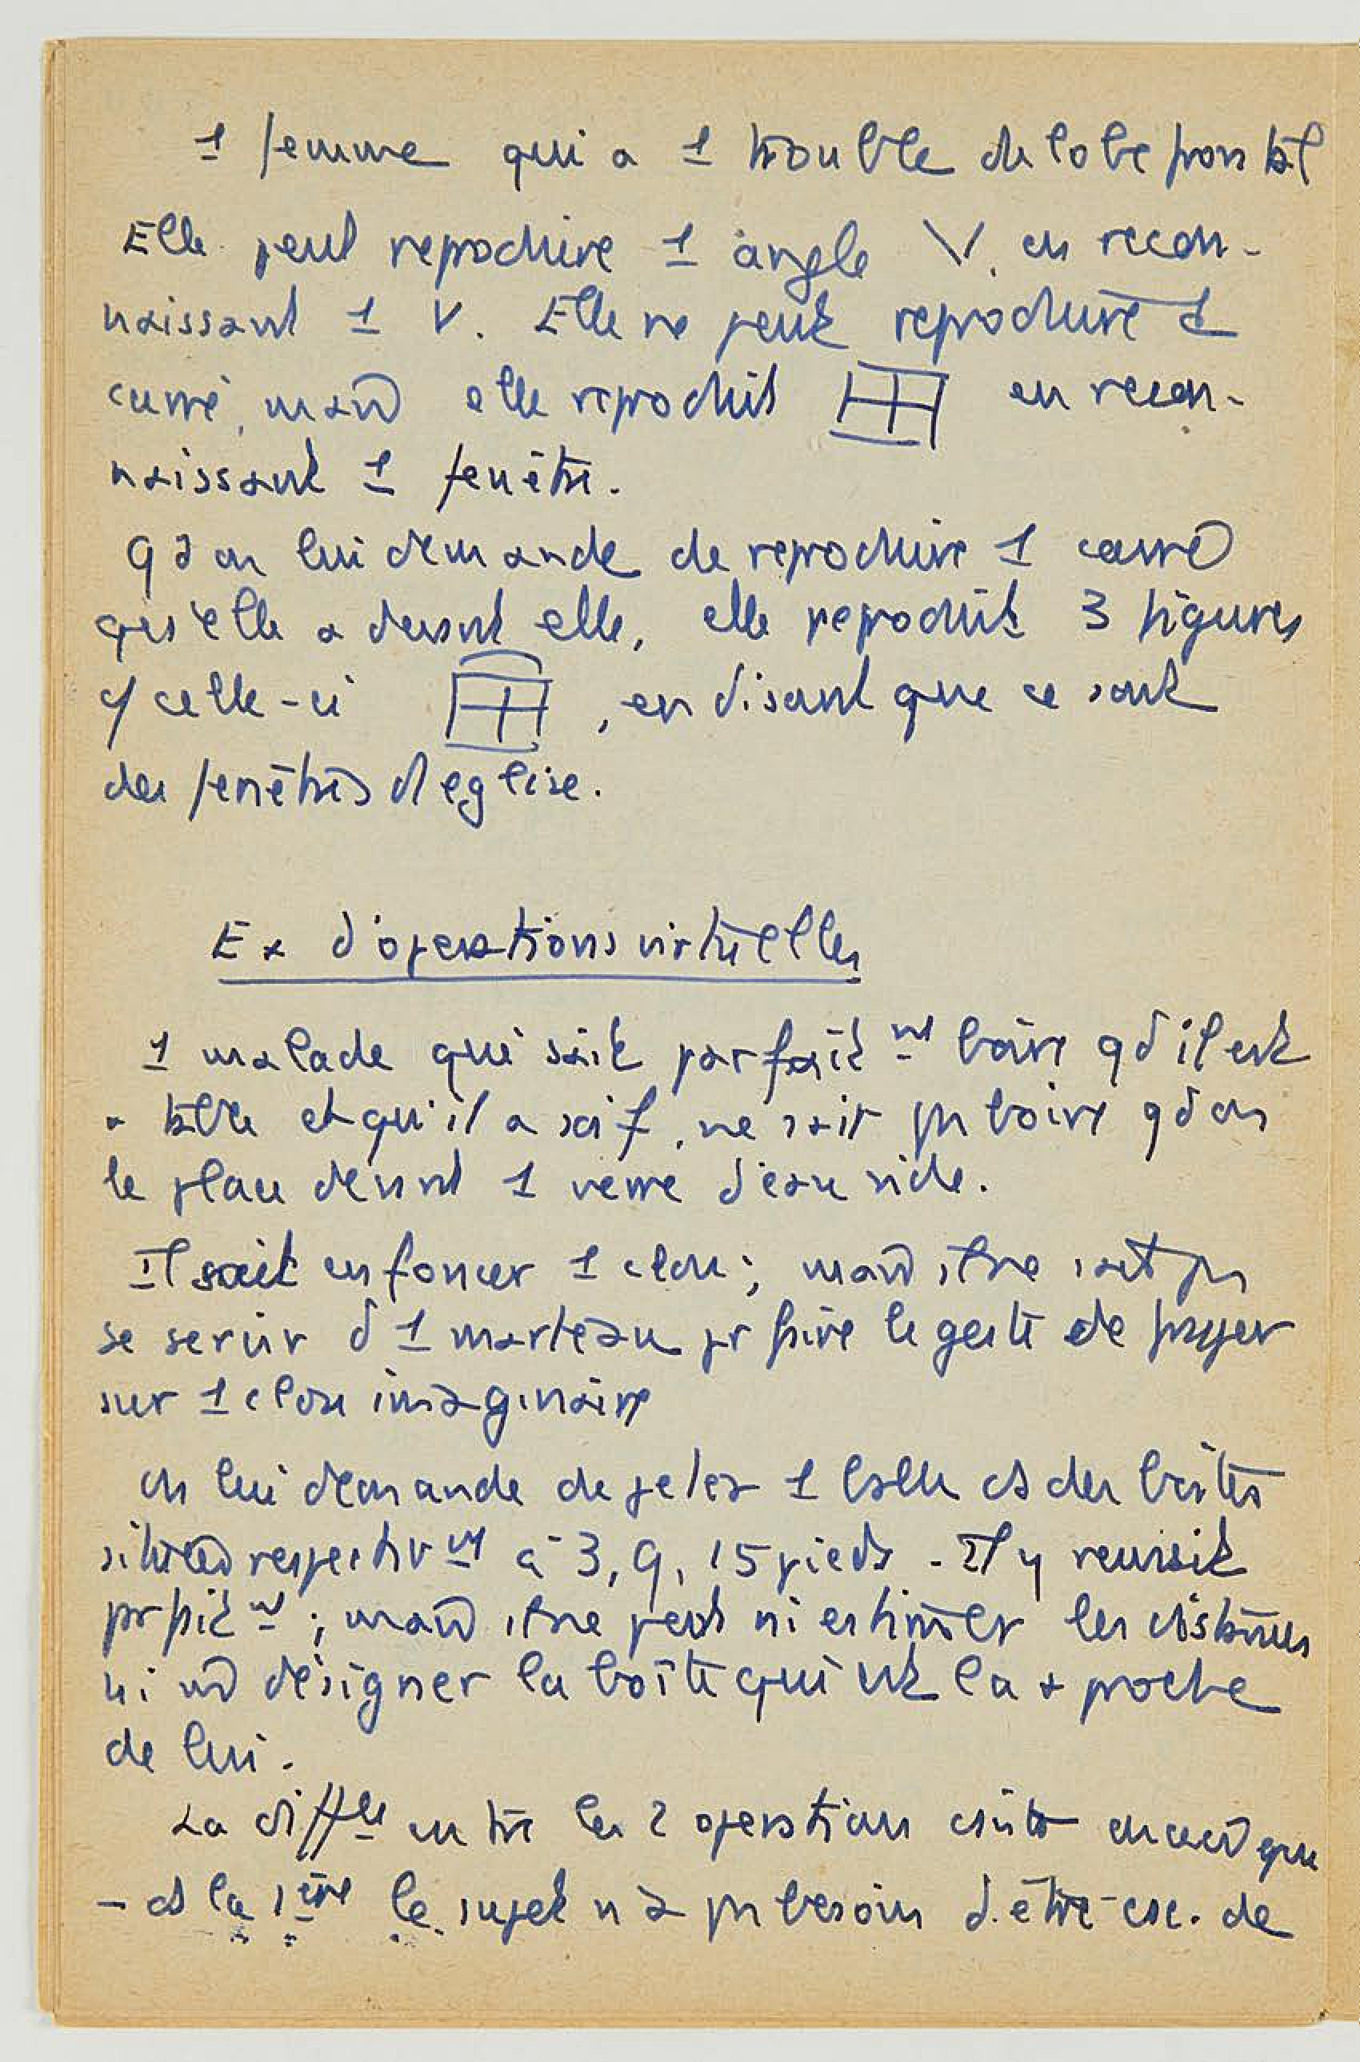 1 femme qui a 1 trouble du lobe frontal
Elle peut reproduire 1 angle V, en recon-
naissant 1 V. Elle ne peut reproduire 1
carré, mais elle reproduit en recon-
naissant 1 fenêtre.
qd on lui demande de reproduire 1 carré
qu'elle a devant elle, elle reproduit 3 figures
cf celle-ci , en disant que ce sont
des fenêtres d'eglise.
Ex d'operations virtuelles
1 malade qui sait parfaitmt boire qd il est
a table et qu'il a soif, ne sait pas boire qd on
le place devant 1 verre d'eau vide.
Il sait enfoncer 1 clou ; mais il ne sait pas
se servir d 1 marteau pr faire le geste de frapper
sur 1 clou imaginaire
on lui demande de jeter 1 balle ds des boîtes
situées respectivmt à 3, 9, 15 pieds - Il y reussit
parfaitmt ; mais il ne peut ni estimer les distances
ni désigner la boîte qui est la + proche
de lui.
La diffce entre les 2 operations que
- ds la 1ère le sujet n'a pas besoin d'être csc. de